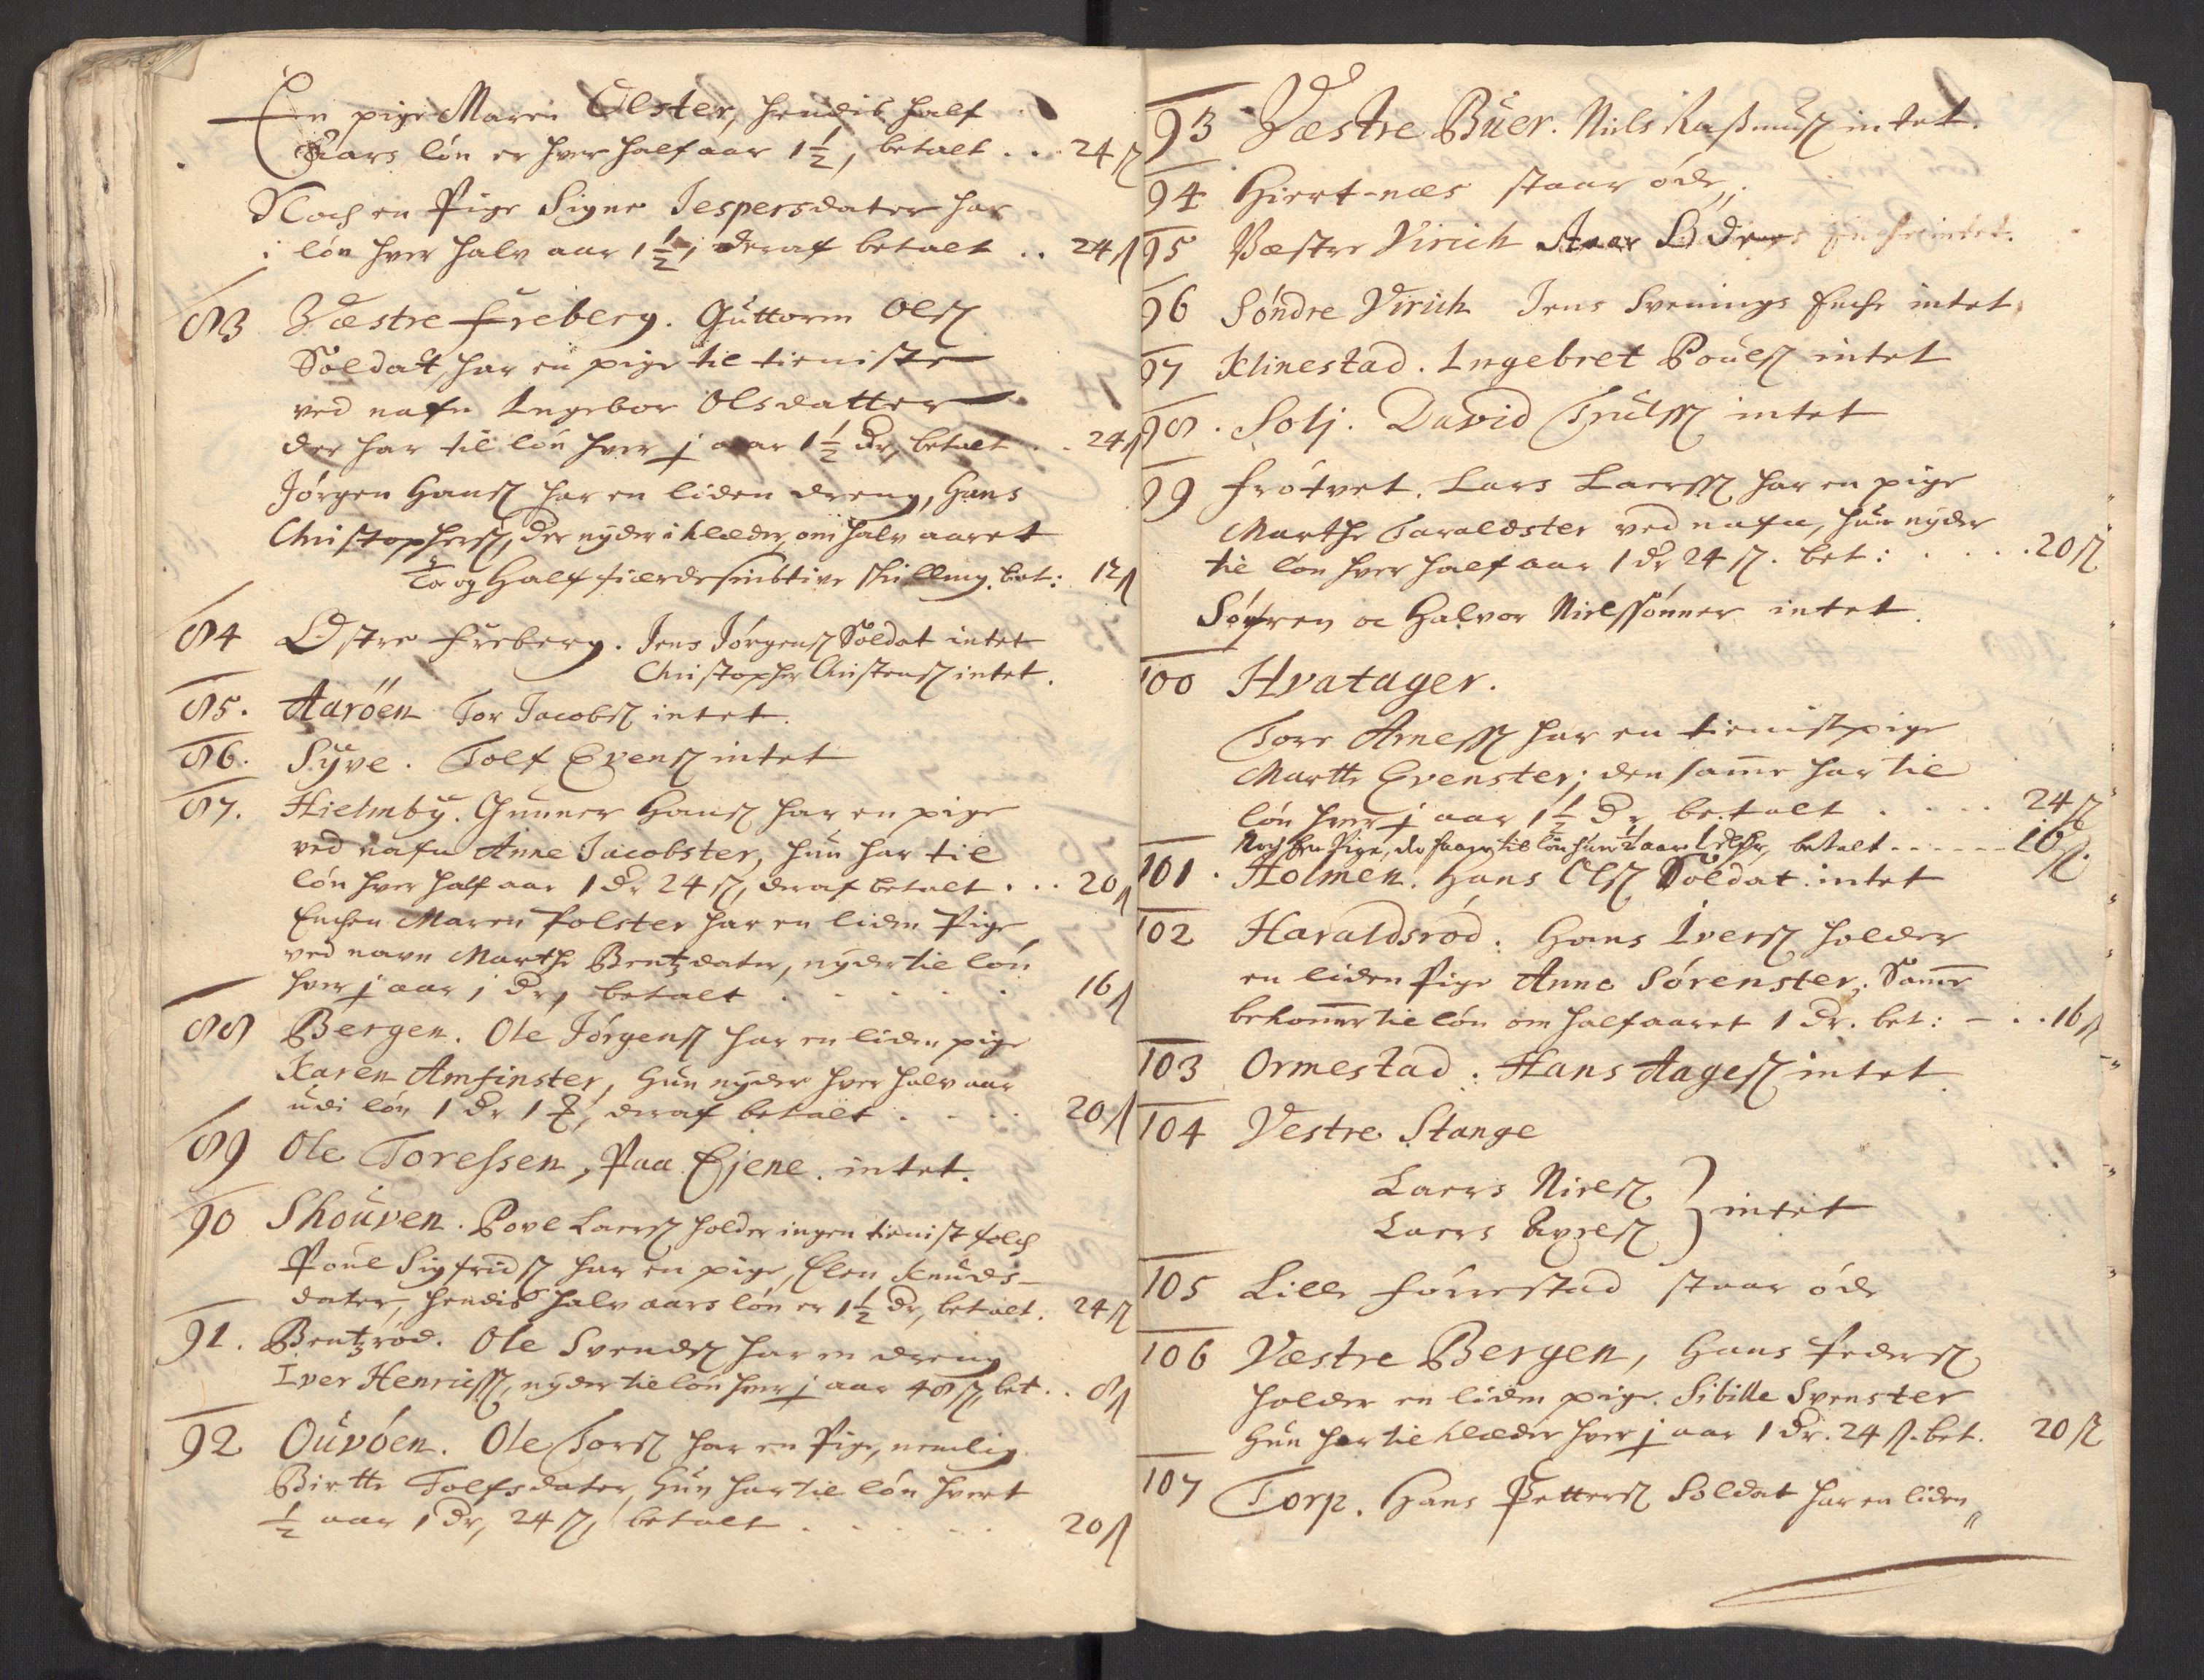 En pige Maren Olster, hendis half
Aars løn er hver half aar 1½, betalt . . 24 ß
Noch en Pige Signe Jespersdater har
i løn hver halv aar 1½, deraf betalt . . 24 ß
83 Væstre Freberg. Guttorm Olß
Soldat, har en pige til tieniste
ved nafn Ingebor Olsdatter
der har til løn hver j aar 1½ dr, betalt . . 24 ß
Jørgen Hansß har en liden dreng, Hans
Christophersß, der nyder i klæder om halv aaret
To og Half fierdesindstive skilling. bet: 12 ß
84 Østre Freberg. Jens Jørgensß Soldat intet
Christopher Christensß intet.
85. Aarøen Tor Jacobsß intet.
86. Syve. Tolf Evensß intet
87. Hielmby. Gunner Hansß har en pige
ved nafn Anne Jacobster, hun har til
løn hver half aar 1 dr 24 ß, deraf betalt . . . 20 ß
Enchen Maren Polster har en liden Pige
ved navn Marthe Bentzdater, nyder til løn
hver j aar j dr, betalt . . . . . . 16 ß
88 Bergen. Ole Jørgensß har en liden pige
Karen Amfinster, hun nyder hver halv aar
udi løn 1 dr 1 ꝸ, deraf betalt . . . . 20 ß
89 Ole Toressen, Paa Ejene. intet.
90 Skouven. Povl Laersß holder ingen tienist folch
Poul Sigfridsß har en pige, Elen Knuds-
dater, hendis halv aars løn er 1½ dr, betalt. 24 ß
91. Bentzrød. Ole Svendsß har en dreng
Iver Henricsß, nyder til løn hver j aar 48 ß, bet. . 8 ß
92 Ouvøen. Ole Torsß har en Pige, nemlig
Birtte Tolfsdater, Hun har til løn hvert
½ aar 1 dr, 24 ß, betalt . . . . . . 20 ß
93 Væstre Buer. Niels Rasmusß intet.
94 Hiert-næs staar øde,
95 Væstre Virich Enche intet.
96 Søndre Virich Jens Svenings Enche intet.
97 Klinestad. Ingebret Poulsß intet
98. Solj. David Truls​ß intet
99 Frøtvet. Lars Laersß har en pige
Marthe Taraldster ved nafn, hun nyder
til løn hver half aar 1 dr 24 ß. bet: . . . . . 20 ß
Søfren oc Halvor Nielssønner intet.
100 Hvatager.
Tore Arnesß har en tienistpige
Martte Evenster, den samme har til
løn hver j aar 1½ dr betalt . . . . 24 ß
Noch en Pige, der faar til løn hver ½ aar 1 dlr, betalt . . . . . . 16 ß.
101. Holmen. Hans Olsß Soldat. intet
102 Haraldsrød. Hans Iversß holder
en liden Pige Anne Sørenster. Samme
bekommer til løn om half aaret 1 dr. bet: - . . 16 ß
103 Ormestad. Hans Aagesß intet.
104 Vestre Stange
Laers Nielsß
Laers } intet
105 Lille Førrestad staar øde
106 Væstre Bergen, Hans Pedersß
holder en liden pige. Sibille Svenster
Hun har til klæder hver j aar 1 dr. 24 ß. bet. 20 ß
107 Torp. Hans Pettersß Soldat har en liden